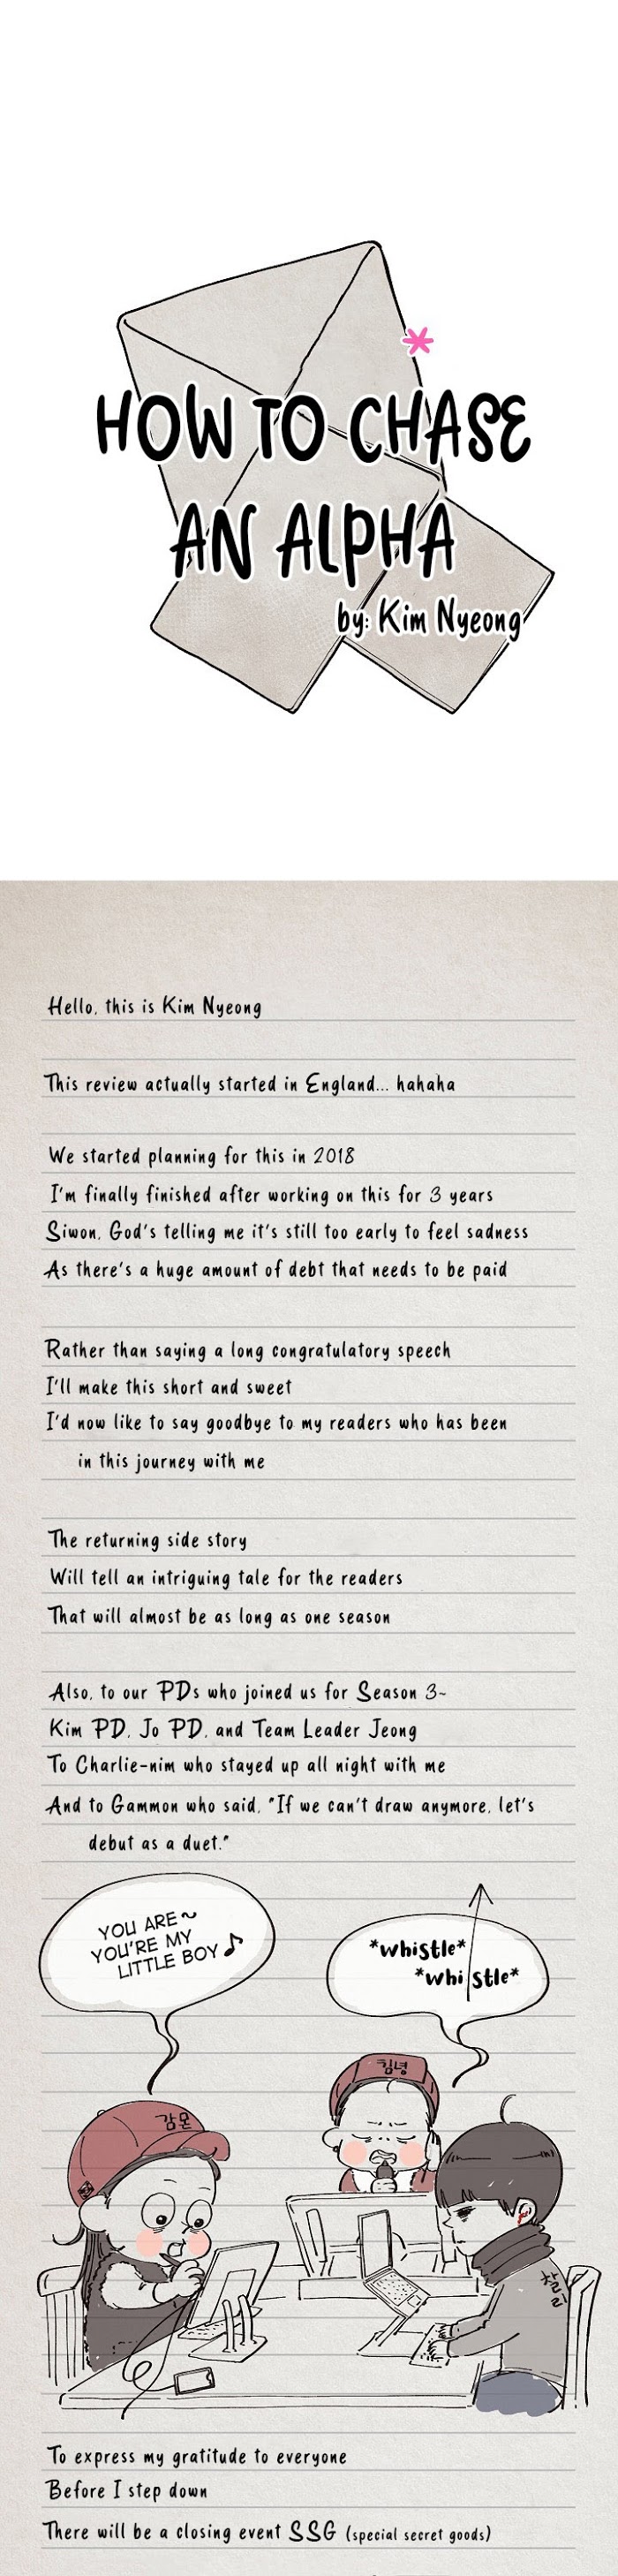 HOW TO CHASE
AN ALPHA
by: Kim Nyeong
Hello, this is Kim Nyeong
This review actually started in England... hahaha
We started planning for this in 2018
I'm finally finished after working on this for 3 years
Siwon, God's telling me it's still too early to feel sadness
As there's a huge amount of debt that needs to be paid
Rather than saying a long congratulatory speech
I'll make this short and sweet
I'd now like to say goodbye to my readers who has been
in this journey with me
The returning side story
Will tell an intriguing tale for the readers
That will almost be as long as one season
Also, to our PDs who joined us for Season 3~
Kim PD, Jo PD, and Team Leader Jeong
To Charlie-nim who stayed up all night with me
And to Gammon who said, "If we can't draw anymore, let's
debut as a duet."
YOU ARE~
YOU'RE MY
LITTLE BOY♪
*whistle*
*whistle*
김녕
감몬
찰리
To express my gratitude to everyone
Before I step down
There will be a closing event SSG (special secret goods)